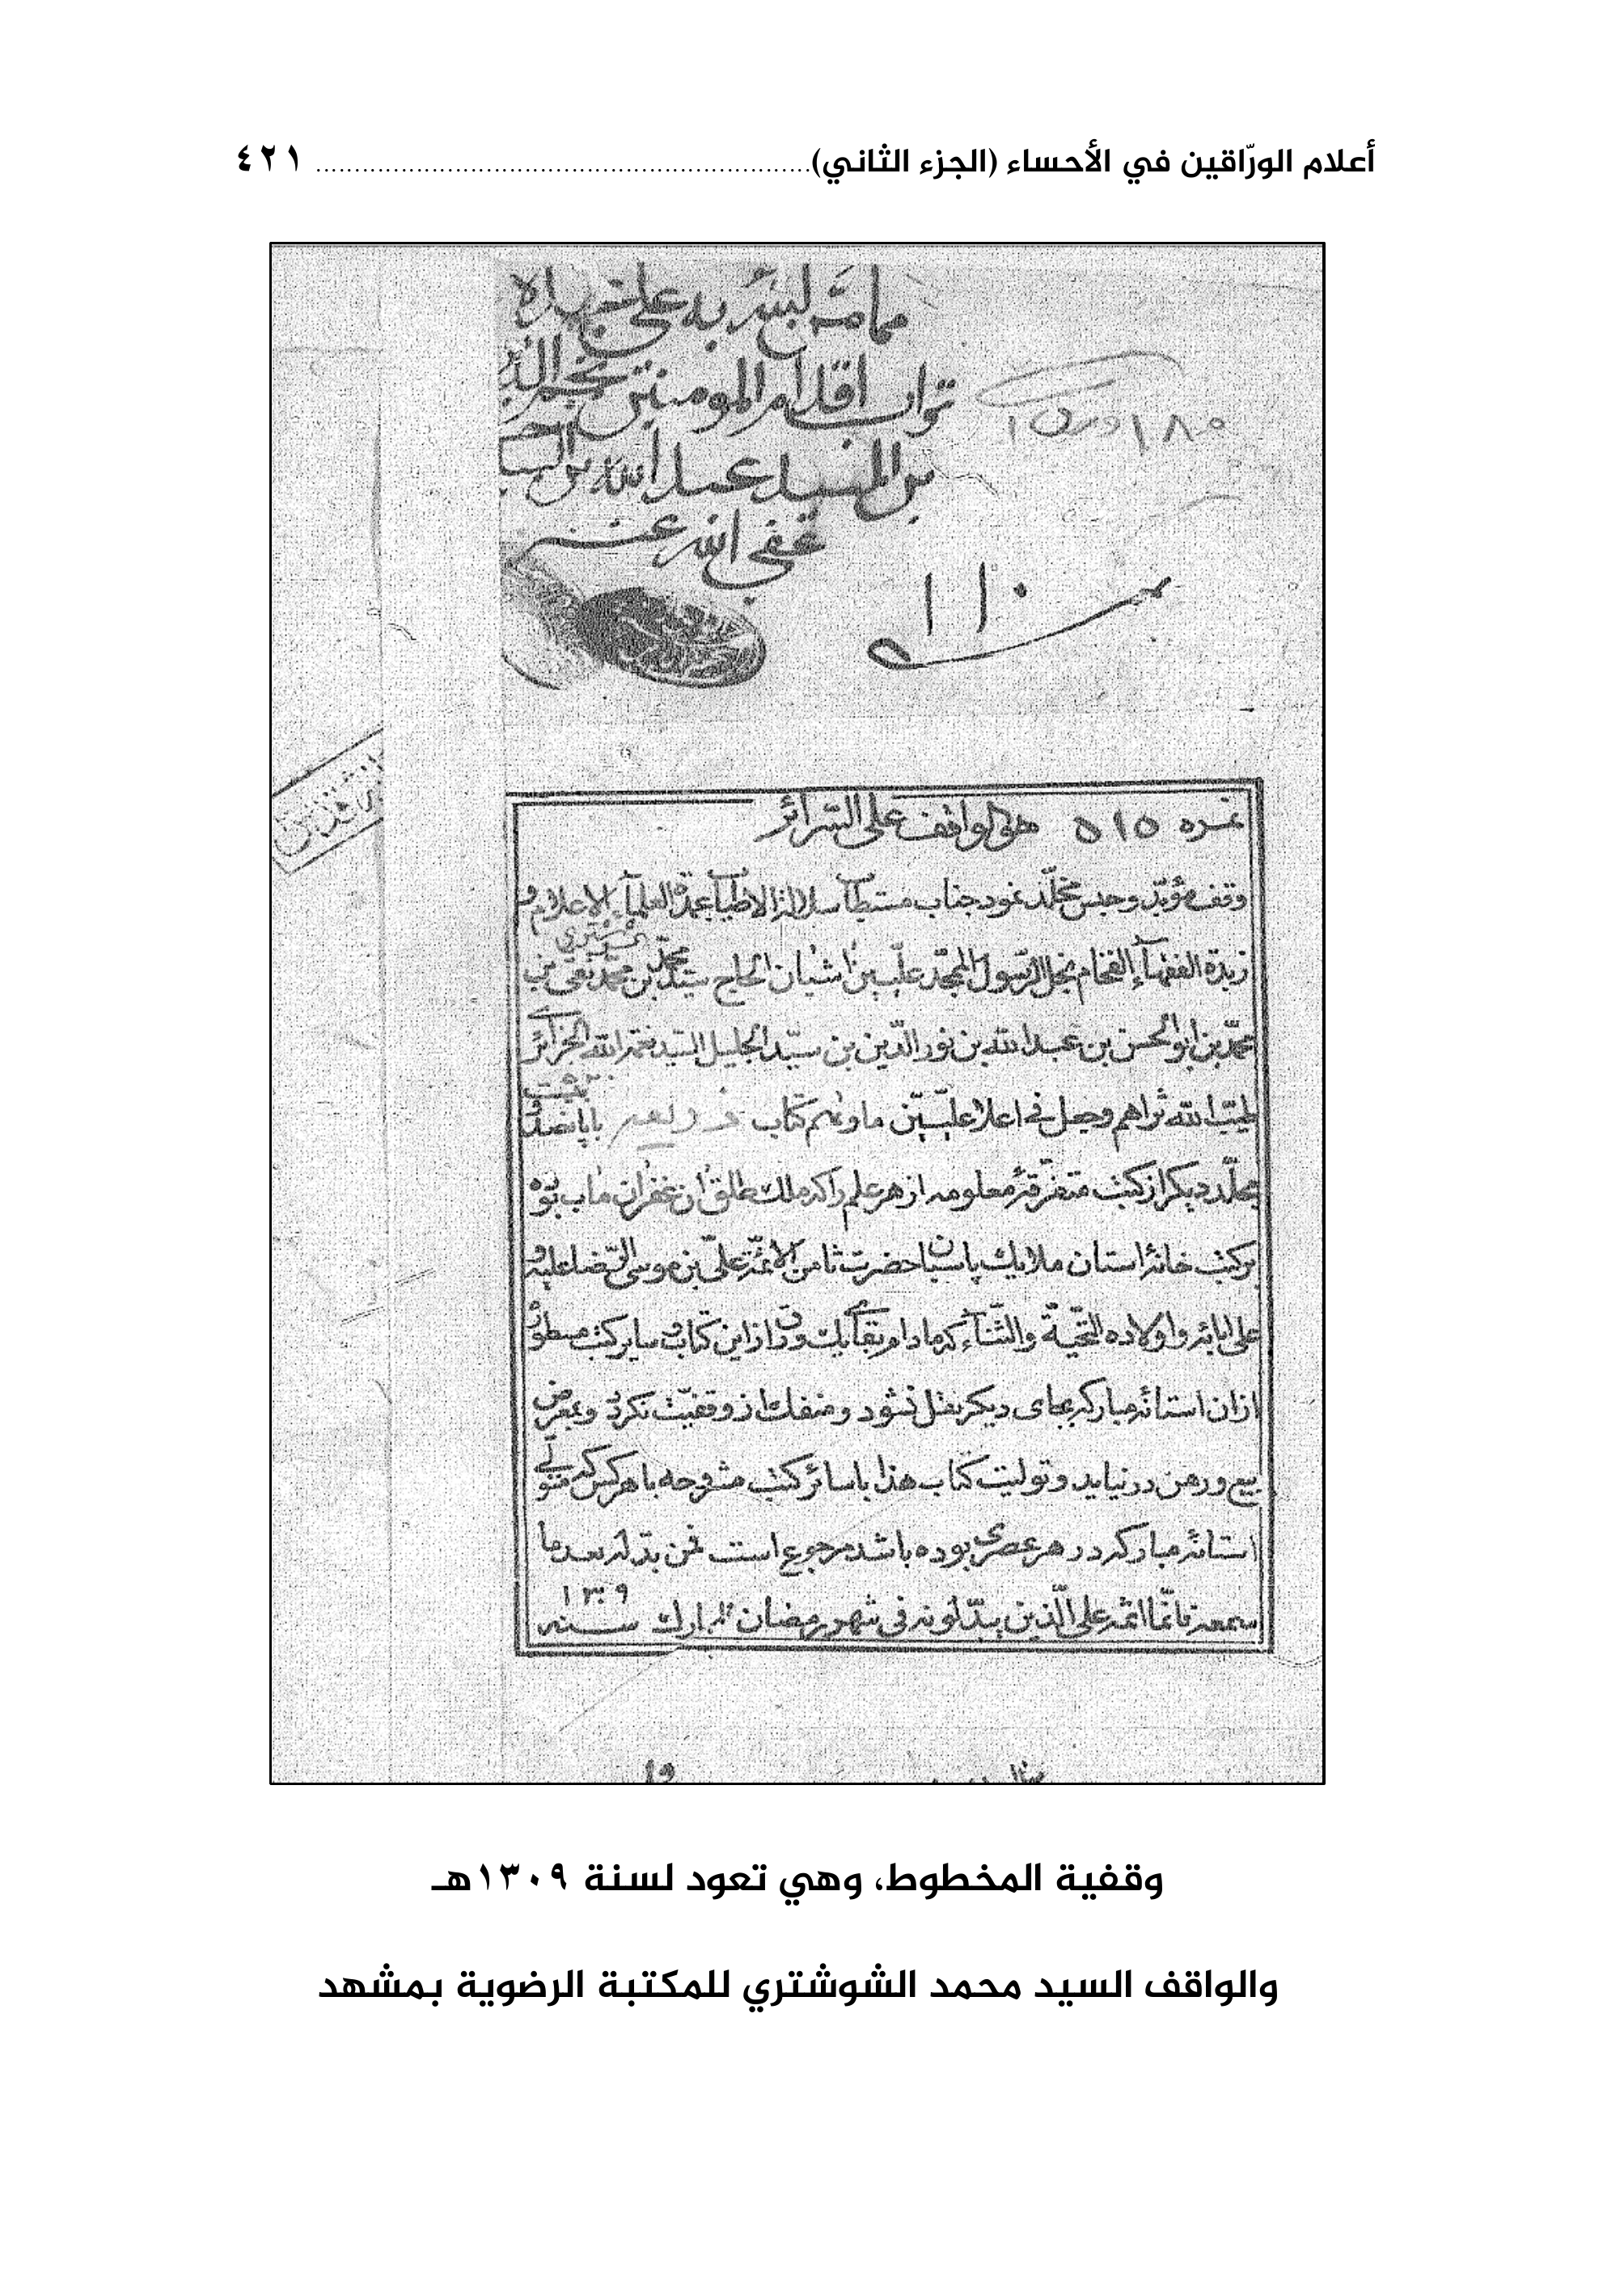 أعلام الورّاقين في الأحساء (الجزء الثاني)............................................................... ٤٢١
به على
تراب اقدام المومنين
بن السيد عبد الله بن السيد
عفى الله عنه
نمره ٥١٥ هو الواقف على السرائر
وقف مؤبّد وحبس مخلّد نمود جناب مستطاب سلالة الاطياب عمدة العلمآء الاعلام و
زبدة الفقهآء الفخام نجل الرّسول المجّد علّيين اشيان الحاج سيّد محمّد بن محمّد تقى بن
شوشتري
محمّد بن ابو الحسن بن عبد الله بن نور الدّين بن سيّد الجليل السيّد نعمة الله الجزائرے
طيّب الله ثراهم وجعل في اعلا علّيّين ماوٰىهم كتاب باپانصد و بيست
مجلّد ديكر از كتب متفرّقهٔ معلومه از هر علم را كه ملك طلق ان غفران ماب بوده
بر كتب خانهٔ استان ملايك پاسبان حضرت ثامن الائمّة علىّ بن موسى الرّضا عليه و
على ابائه و اولاده التّحيّة والثّنآء كه مادام بقآے يك ورق از اين كتاب و ساير كتب مسطوره
از ان استانهٔ مباركه بجاى ديكر نقل نشود و منفك از وقفيّت نكردد و بمعرض
بيع و رهن در نيايد و توليت كتاب هذا با سائر كتب مشروحه با هر كس كه متولّے
استانهٔ مباركه در هر عصرى بوده باشد مرجوع است فمن بدّله بعد ما
سمعه فانّما اثمه على الّذين يبدّلونه فى شهر رمضان المبارك سنه ١٣٠٩
وقفية المخطوط، وهي تعود لسنة ١٣٠٩هـ
والواقف السيد محمد الشوشتري للمكتبة الرضوية بمشهد